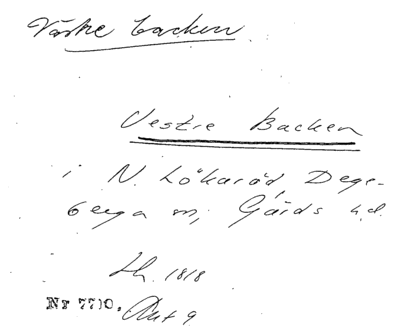 Västre backen
Vestre Backen
i N. Lökaröd, Dege-
berga sn, Gärds hd.
Lh. 1818
Nr 770. Akt 9